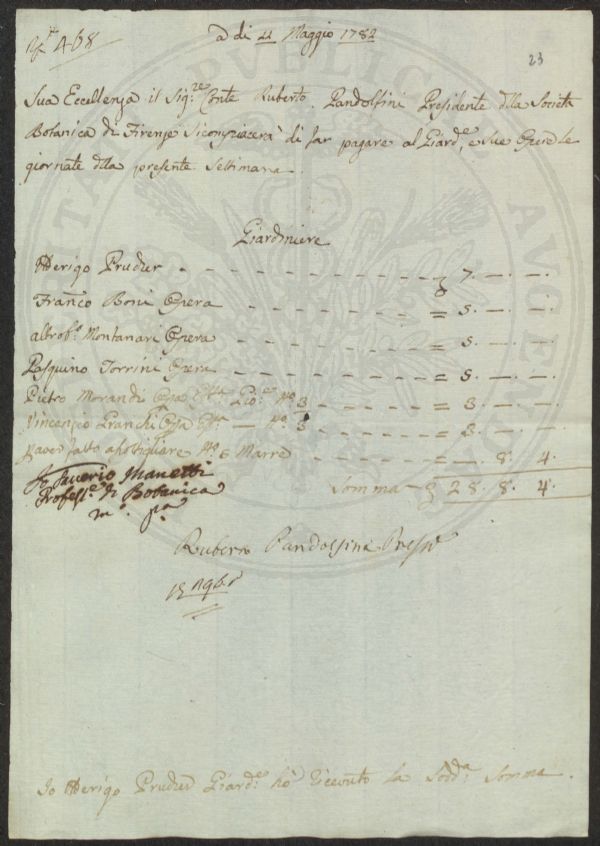 a di 11 Maggio 1782
468
23
Sua Eccellenza il Sig.re Conte Ruberto Pandolfini Presidente della Società
Botanica di Firenze Si compiacerà di far pagare al Giard.e, e Sue Opere le
giornate della presente Settimana.
Giardiniere
Herigo Prucher 7. —. —.
Franco Boni Opera = 5. —. —.
Montanari Opera = 5. —. —.
Pasquino Torrini Opera = 5. —. —.
Pietro Morandi No 3 = 3. —. —.
Vincenzio Franchi No 3 = 3. —. —.
p aver fatto No 6 Marre = —. 8. 4.
Saverio Manetti
Profess.e di Botanica
m.o p.a
Somma 28. 8. 4.
Ruberto Pandolfini Preste
Io Herigo Prucher Giard.e hò riceuto la Sod.a Somma.
PVBLICAE
AVGENDO